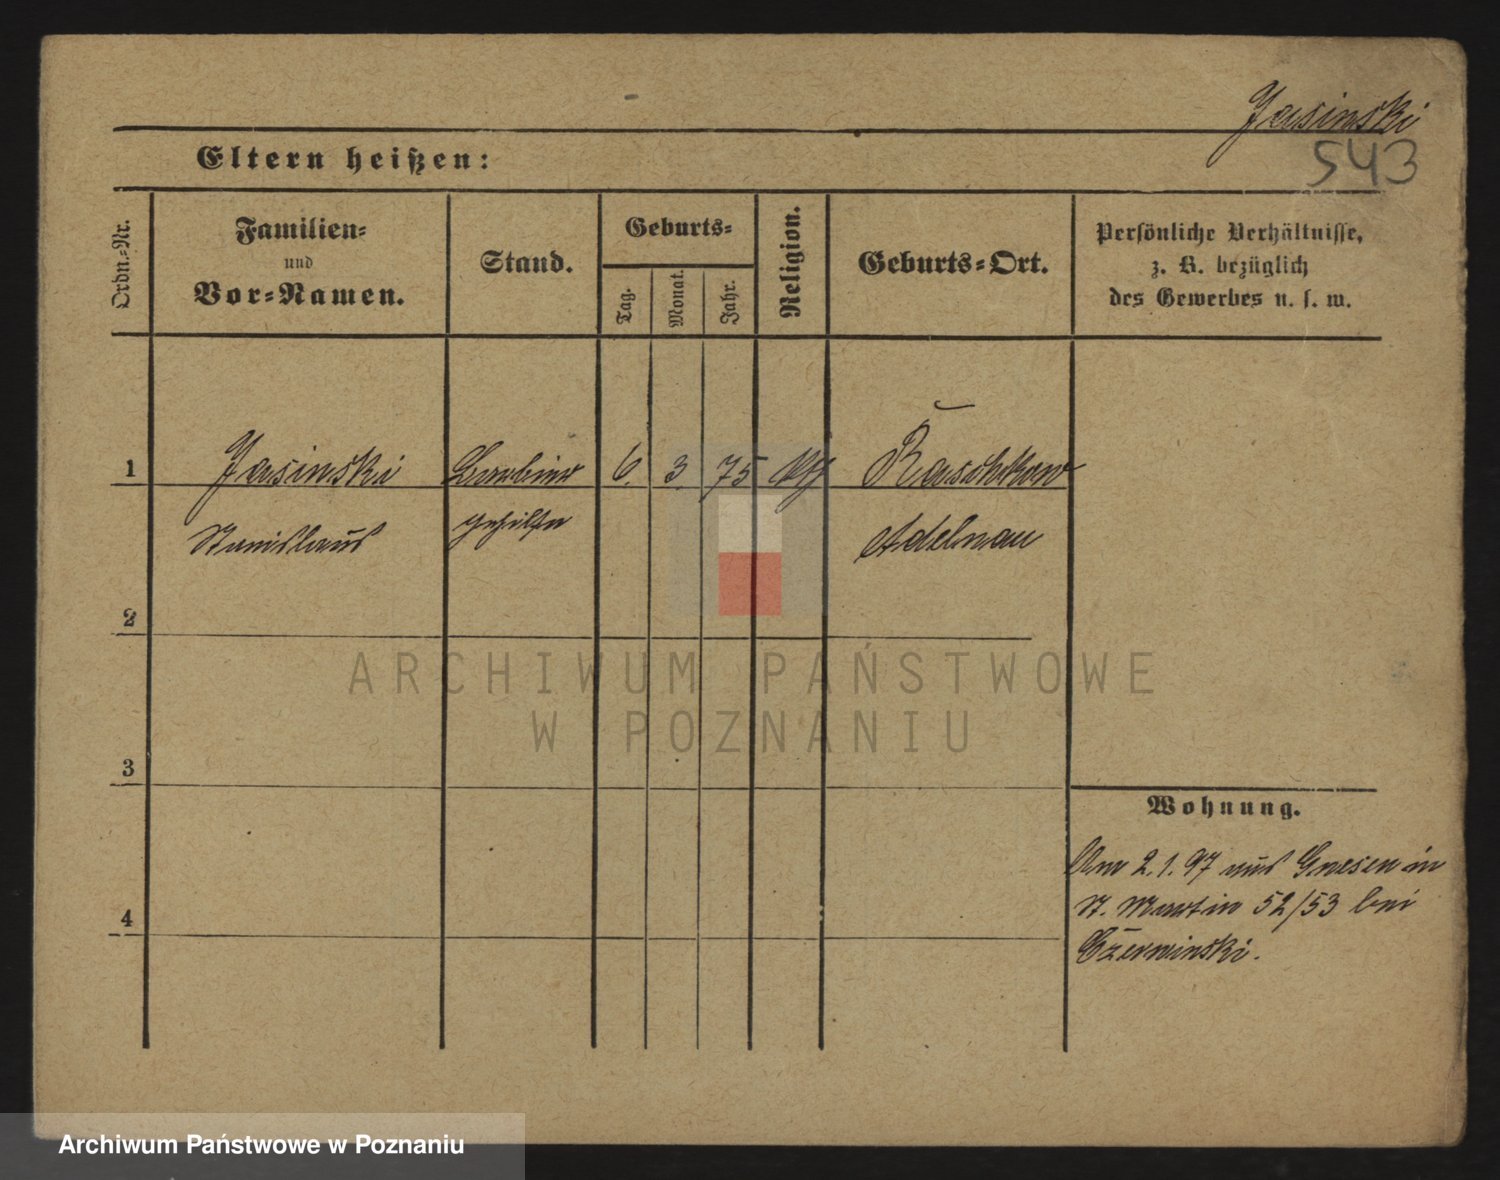 Jasinski
543
Eltern heißen:
Ordn.-Nr.
Familien-
und
Vor-Namen.
Stand.
Geburts-
Tag.
Monat.
Jahr.
Religion.
Geburts-Ort.
Persönliche Verhältnisse,
z. B. bezüglich
des Gewerbes u. s. w.
1 Jasinski Barbier 6. 3. 75 Raschkow
Stanislaus gehilfe Adelnau
2
3
4
Wohnung.
Am 2.1.97 aus Gnesen in
St. Martin 52/53 bei
Czerwinski.
ARCHIWUM PAŃSTWOWE
W POZNANIU
Archiwum Państwowe w Poznaniu